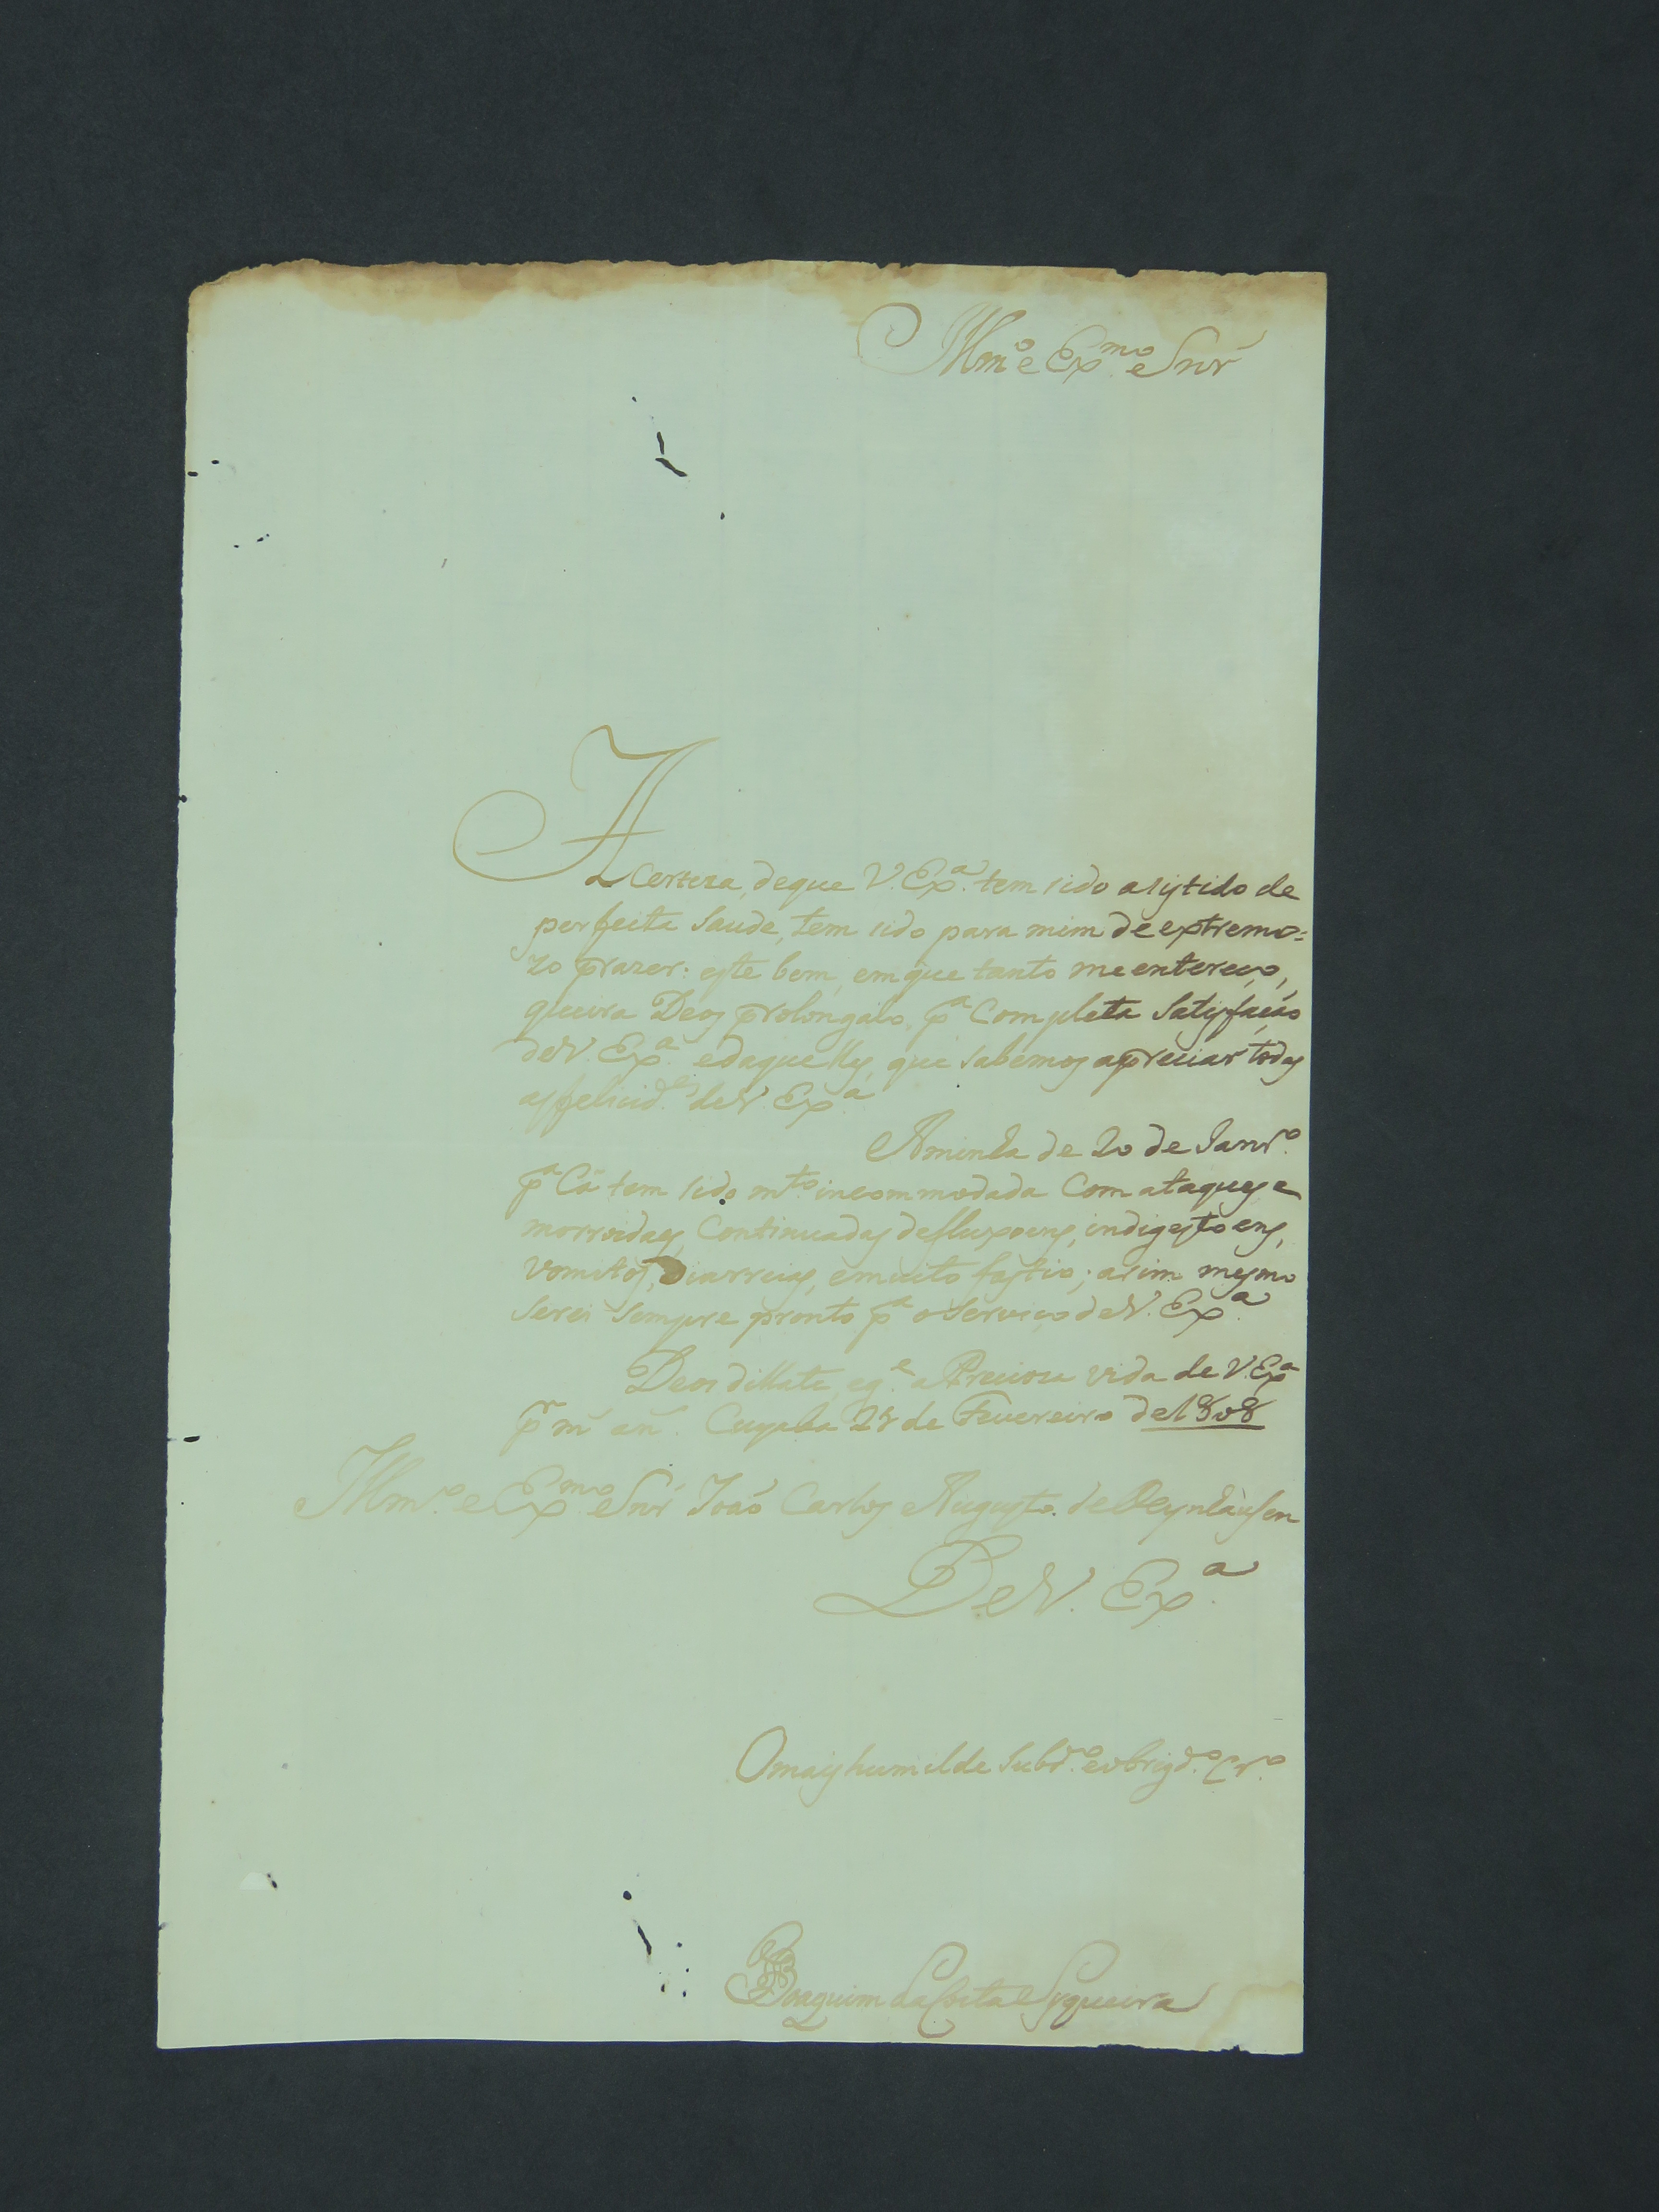 Illmo e Exmo Snr
A Certeza, deque V. Exa. tem sido asistido de
perfeita Saude, tem sido para mim de extremo=
zo prazer: este bem, emque tanto me entereço,
queira Deos prolongalo, pa Completa Satisfação
deV. Exa. edaquelles, que Sabemos apreciar todas
asfelicides deV. Exa
Aminha de 20 de Janro.
pa Cá tem sido mto incommodada Com ataques e
morroidas, Continuadas defluxoens, indigestoens,
Vomitos, Diarreias, emuito fastio; asim mesmo
Serei Sempre pronto pa o Serviço deV. Exa.
Deos dillate, ege aPreciosa vida de V. Exa
pr ms ans. Cuyaba 28 de Fevereiro de1808
Illmo. e Exmo Snr João Carlos Augusto deOeynhausen
DeV. Exa.
Omaishumilde Subdo. eobrigdo. Cro.
Joaquim daCosta Syqueira